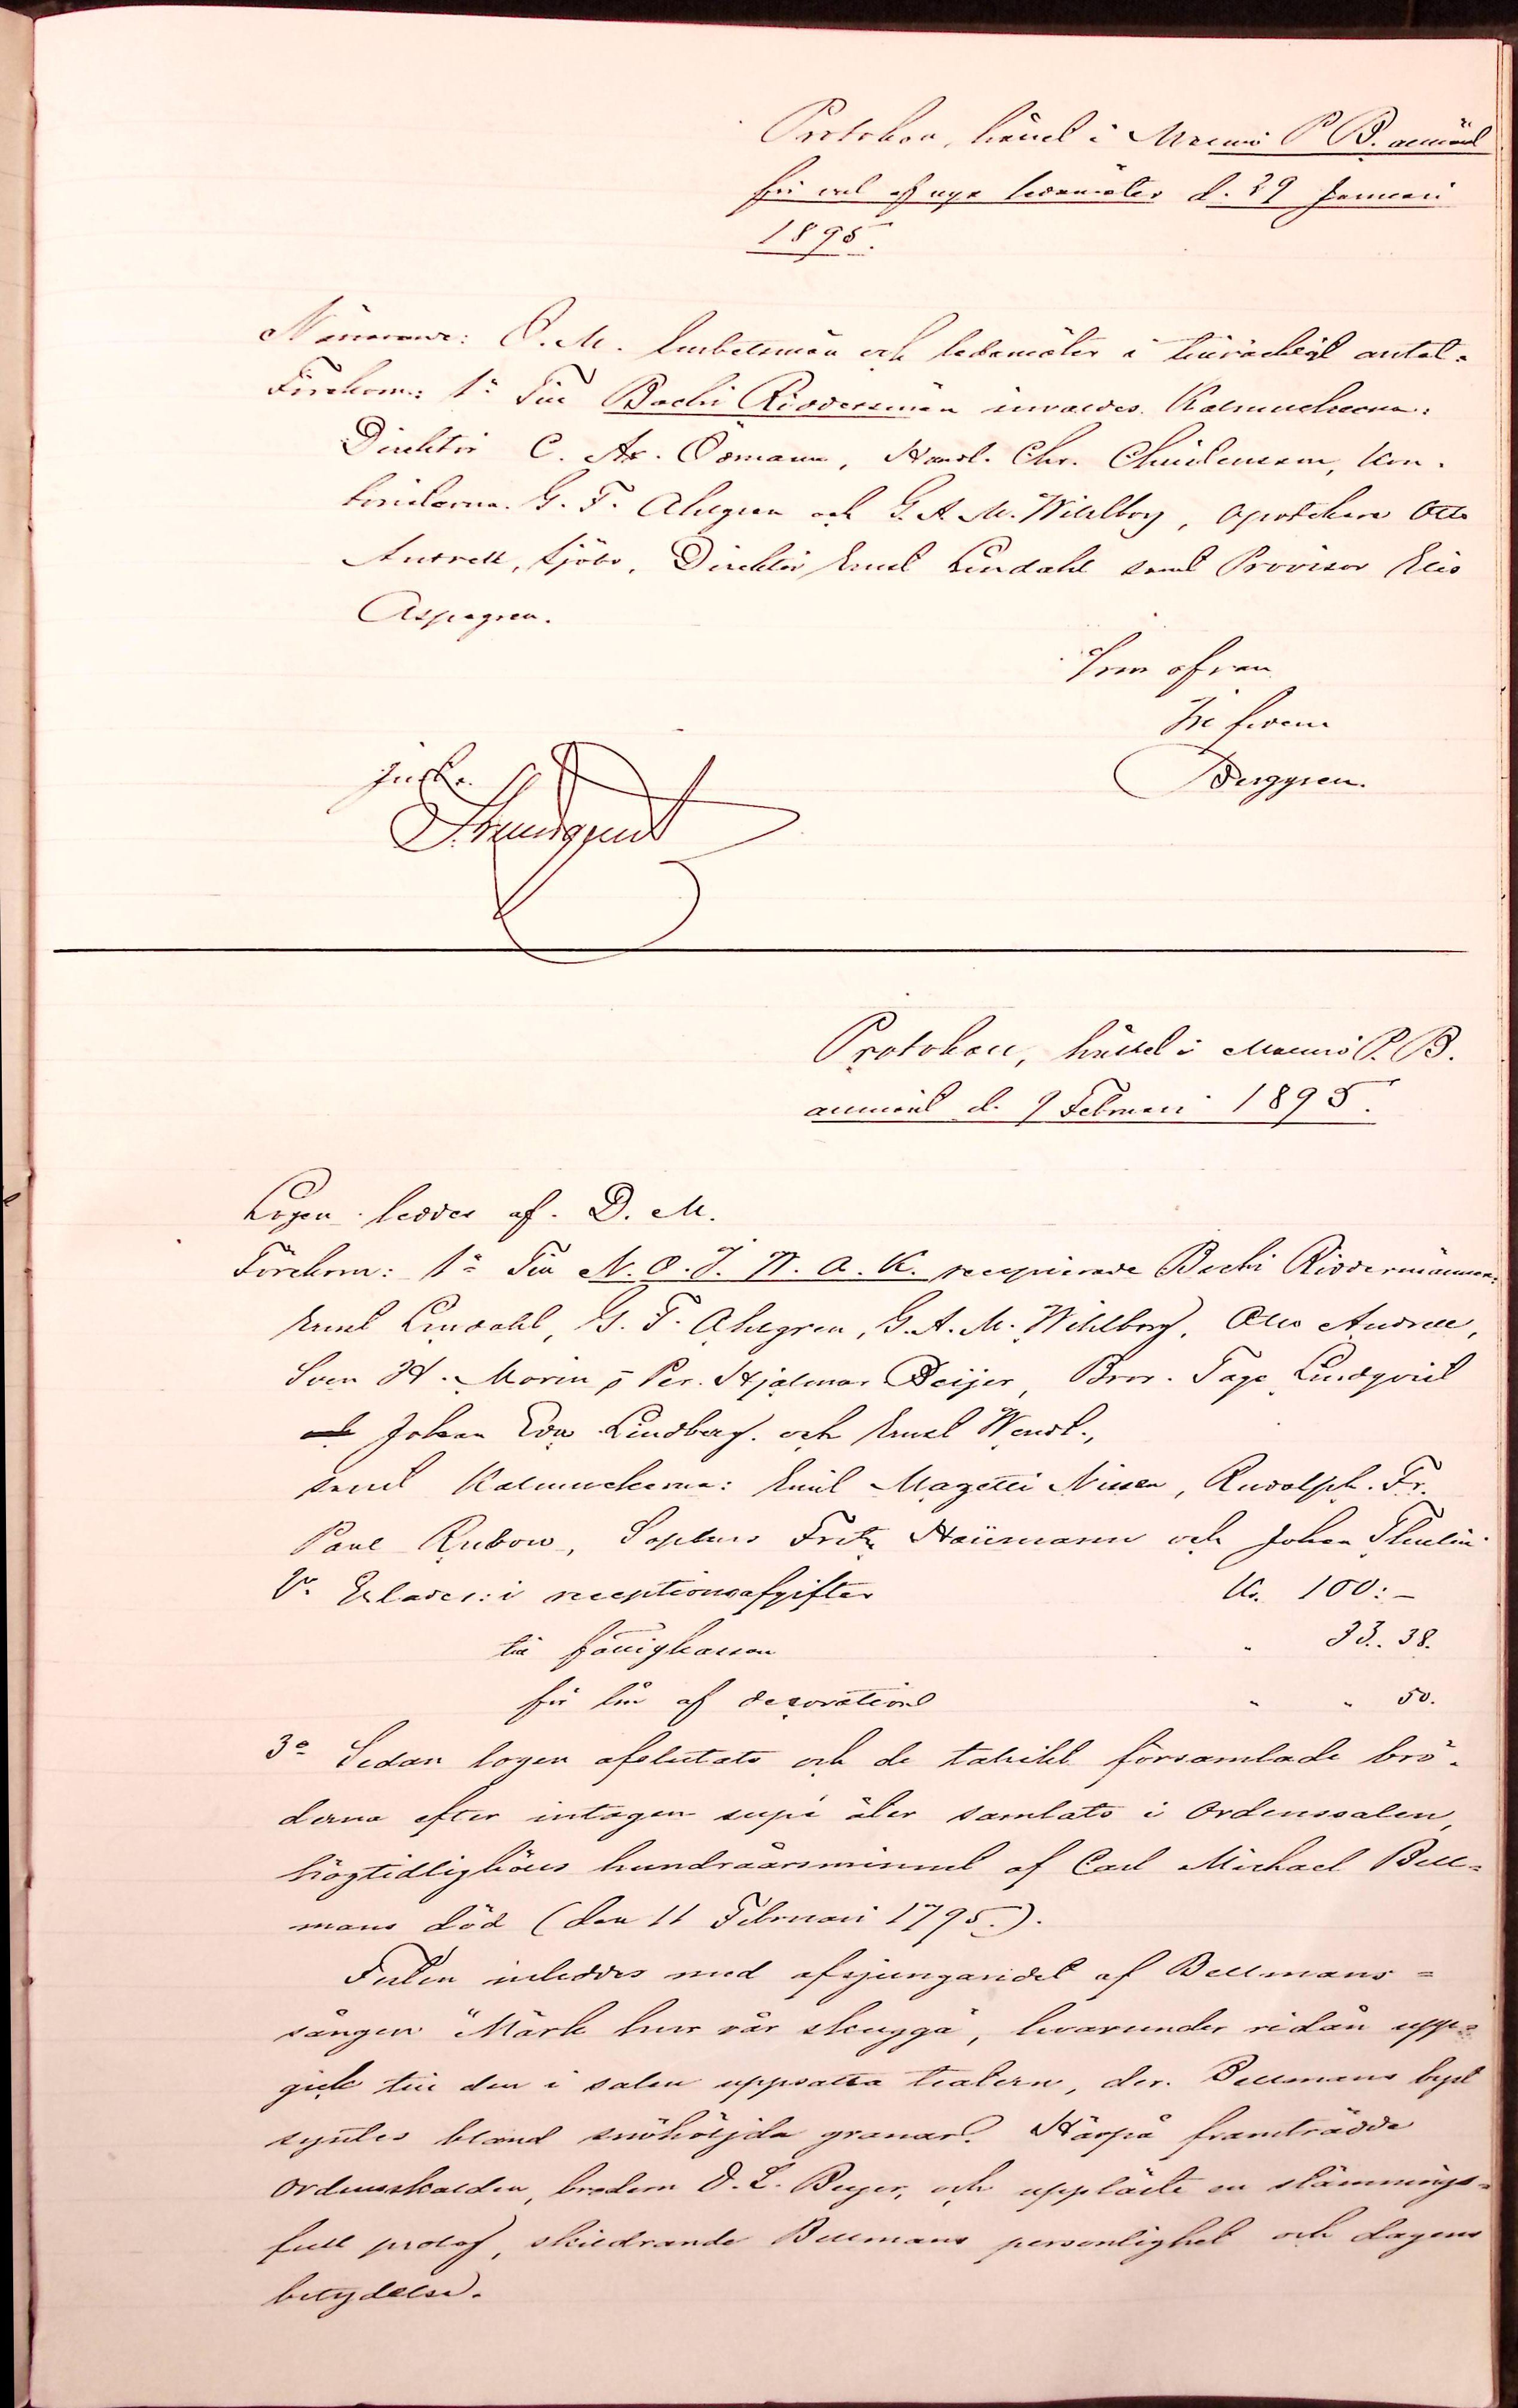 Protokoll, hållet i Malmö P B. allmänt
för val af nya ledamöter d. 29 Januari
1895.
Närvarande: O. M. Embetsmän och ledamöter i tillräckligt antal.
Förekom: 1º Till Bachi Riddersmän invaldes Kalmuckerna:
Direktör C. Ax. Ödmann, Handl. Chr. Christensen, Kon-
toristerna G. F. Ahlgren och G. A. M. Wihlborg, Apotekare Otto
Andrell, Sjöbo, Direktör Ernst Lindahl samt Provisor Elis
Aspegren.
Som ofvan
In fidem
Berggren.
Just.
Strandquist
Protokoll, hållet i Malmö P. B.
allmänt d. 9 Februari 1895.
Logen leddes af D. M.
Förekom: 1º Till N. O. J. N. A. K. recipierade Bachi Riddermännen:
Ernst Lindahl, G. F. Ahlgren, G. A. M. Wihlborg, Otto Andrell,
Sven H. Morin, Per Hjalmar Beijer, Bror Tage Lindqvist
och Johan Edw Lindberg och Ernst Wendt.,
samt Kalmuckerna: Emil Mazetti Nissen, Rudolph Fr.
Paul Rubow, Sophus Fritz Haümann och Johan Thulin
2º Erlades: i receptionsafgifter Kr. 100:-
till fattigkassan " 33.. 38.
för lån af decoration " " 50.
3º Sedan logen afslutats och de talrikt församlade brö-
derna efter intagen supé åter samlats i Ordenssalen,
högtidlighölls hundraårsminnet af Carl Michael Bell-
mans död (den 11 Februari 1795.).
Festen inleddes med afsjungandet af Bellmans-
sången "Märk hur vår skugga", hvarunder ridån upp-
gick till den i salen uppsatta teatern, der Bellmans byst
syntes bland snöhöljda granar. Härpå framträdde
Ordensskalden, brodern O. L. Beijer, och uppläste en stämnings-
full prolog, skildrande Bellmans personlighet och dagens
betydelse.